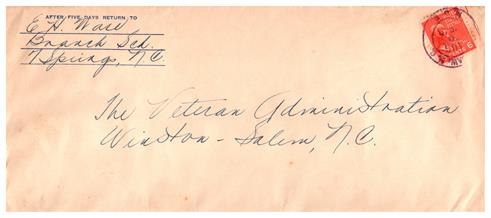 AFTER FIVE DAYS RETURN TO
E. H. Ware
Branch Sch.
7 Springs, N.C.
6
CENTS
The Veteran Administration
Winston - Salem, N.C.